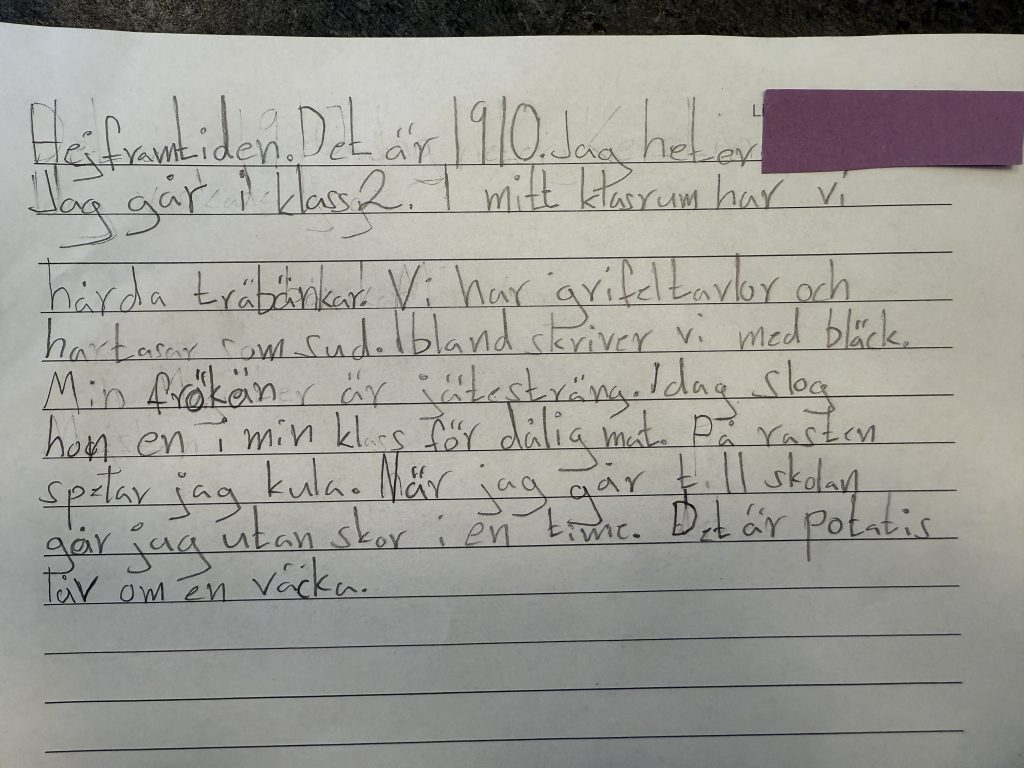 Hejframtiden. Det är 1910. Jag heter
Jag går i klass2. I mitt klasrum har vi
hårda träbänkar. Vi har grifeltavlor och
hartasar som sud. Ibland skriver vi med bläck.
Min frökän är jätesträng. Idag slog
hon en i min klass för dålig mat. På rasten
spelar jag kula. När jag går till skolan
går jag utan skor i en time. Det är potatis
låv om en väcka.